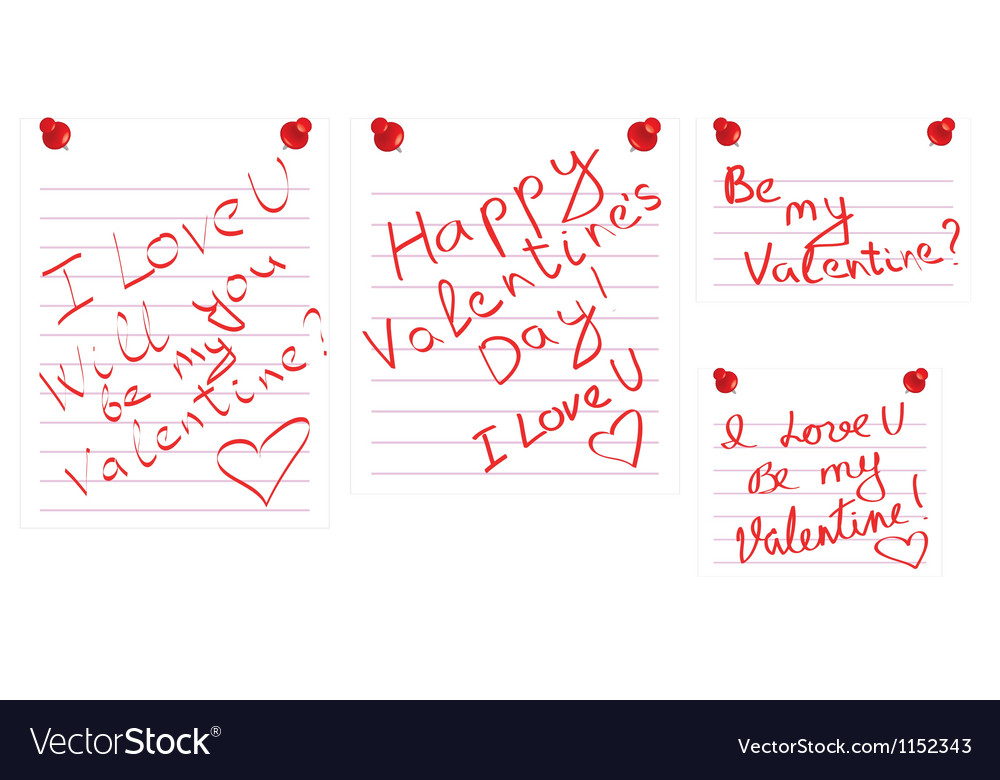 I Love U
Will you
be my
Valentine?
Happy
Valentine's
Day!
I Love U
Be
my
Valentine?
I Love U
Be my
Valentine!
VectorStock®
VectorStock.com/1152343